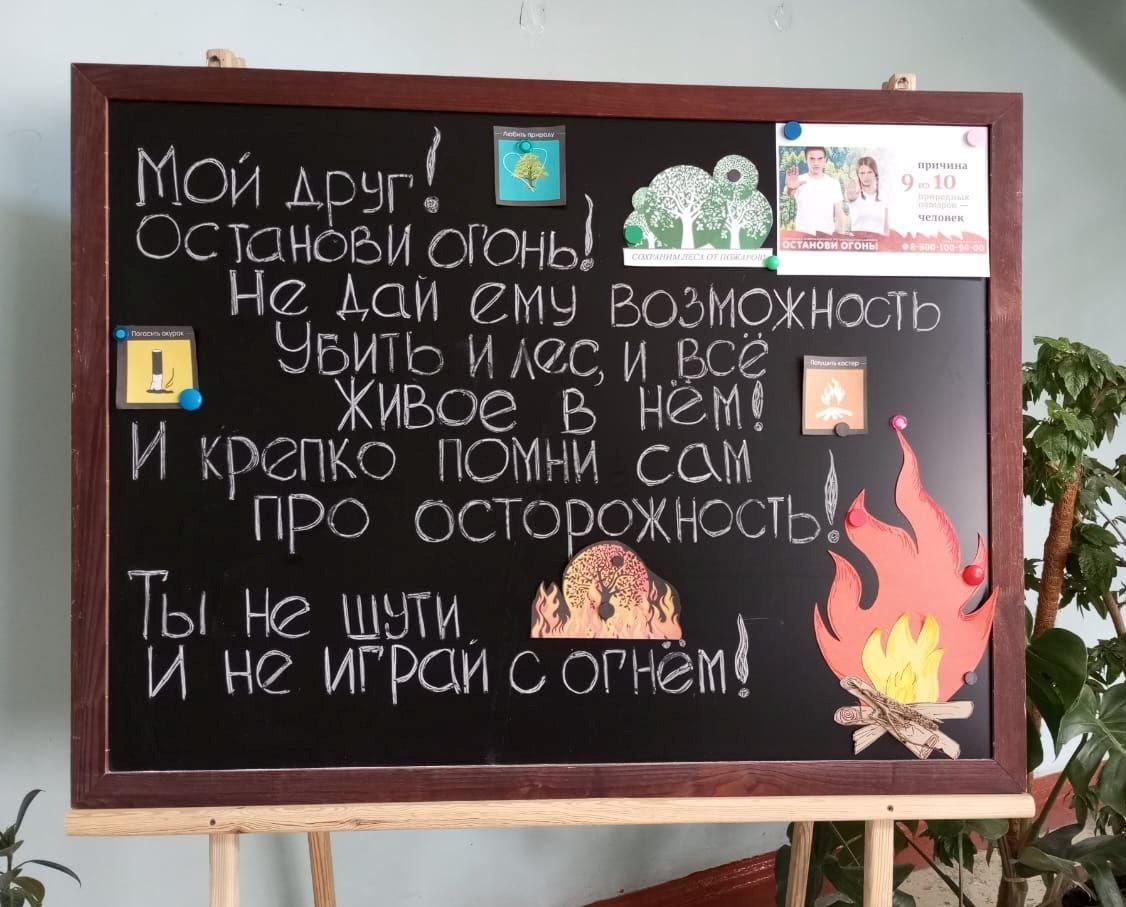 Мой друг!
Останови огонь!
Не дай ему возможность
Убить и лес, и всё
живое в нём!
И крепко помни сам
про осторожность!
Ты не шути
И не играй с огнём!
Любить природу
СОХРАНИМ ЛЕСА ОТ ПОЖАРОВ!
причина
9 из 10
природных
пожаров —
человек
ОСТАНОВИ ОГОНЬ!
8-800-100-94-00
Погасить окурок
Потушить костер